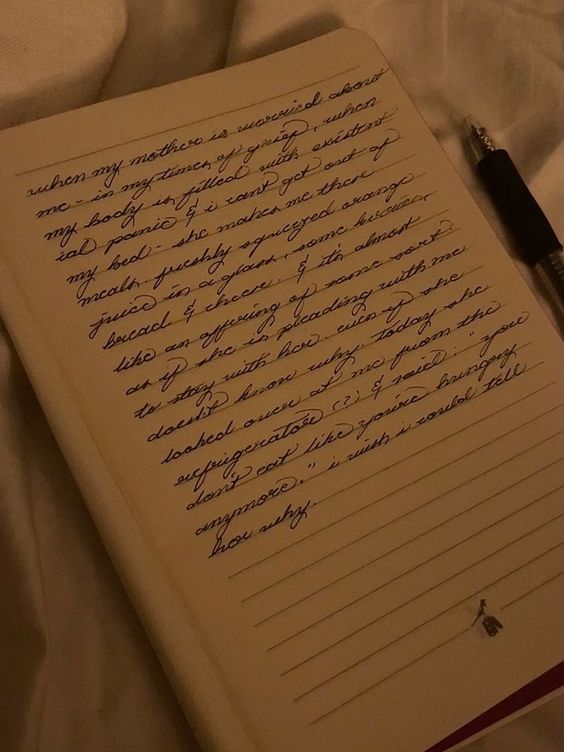 when my mother is worried about
me - in my times of grief, when
my body is filled with existent
ial panic & i can't get out of
my bed - she makes me these
meals. freshly squeezed orange
juice in a glass, some berries,
bread & cheese. & it's almost
like an offering of some sort.
as if she is pleading with me
to stay with her. even if she
doesn't know why. today she
looked over at me from the
refrigerator (?) & said: "you
don't eat like you're hungry
anymore." i wish i could tell
her why.